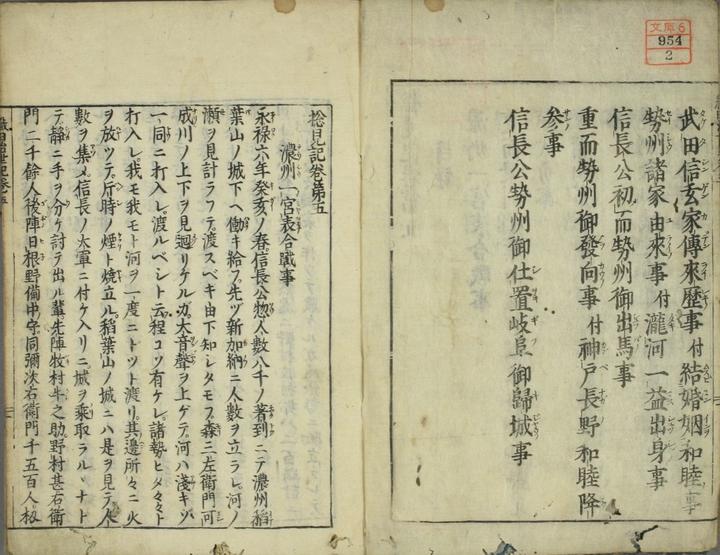 武田信玄家傳來歴事 付 結婚姻和睦事
勢州諸家由來事 付 瀧河一益出身事
信長公初而勢州御出馬事
重而勢州御發向事 付 神戸長野和睦降
参事
信長公勢州御仕置岐阜御歸城事
文庫6
954
2
捴見記巻第五
濃州一宮表合戰事
永禄六年癸亥ノ春信長公惣人数八千ノ著到ニテ濃州稲
葉山ノ城下ヘ働キ給フ先ツ新加納ニ人数ヲ立ラレ河ノ
瀬ヲ見計ラフテ渡スベキ由下知シタモフ森三左衛門可
成川ノ上下ヲ見廻リケルガ大音聲ヲ上ゲテ河ハ淺キゾ
一同ニ打入レ渡ルベシト云程コソ有ケレ諸勢ヒタ々々ト
打入レ我モ我モト河ヲ一度ニトツト渡リ其邊所々ニ火
ヲ放ツテ片時ノ煙ト燒立ル稲葉山ノ城ニハ是ヲ見テ人
数ヲ集メ信長ノ大軍ニ付ケ入リニ城ヲ乘取ラルヽナト
テ静ニ手ヲ分ケ討テ出ル輩先陣牧村牛之助野村甚右衛
門二千餘人後陣日根野備中守同彌次右衛門千五百人扨